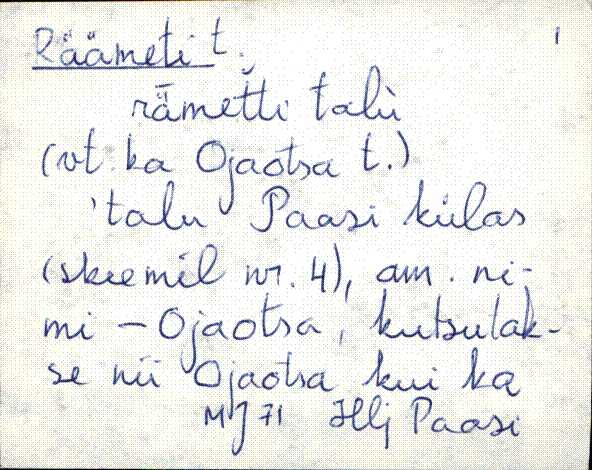 Räämeti t. 1
rämet̆ti talù
(vt. ka Ojaotsa t.)
'talu Paasi külas
(skeemil nr. 4), am. ni-
mi - Ojaotsa, kutsutak-
se nii Ojaotsa kui ka
MJ 71 Hlj Paasi